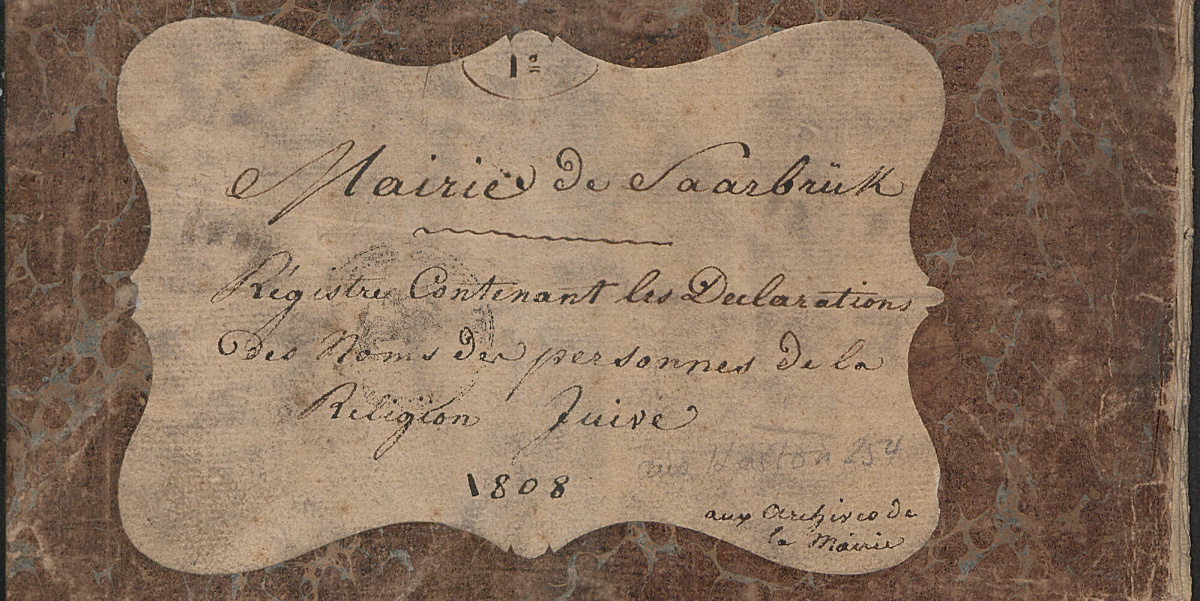 1º
Mairie de Saarbrük
Régistre Contenant les Declarations
des Noms des personnes de la
Religion Juive
1808
aus Kasten 254
aux Archives de
la Mairie